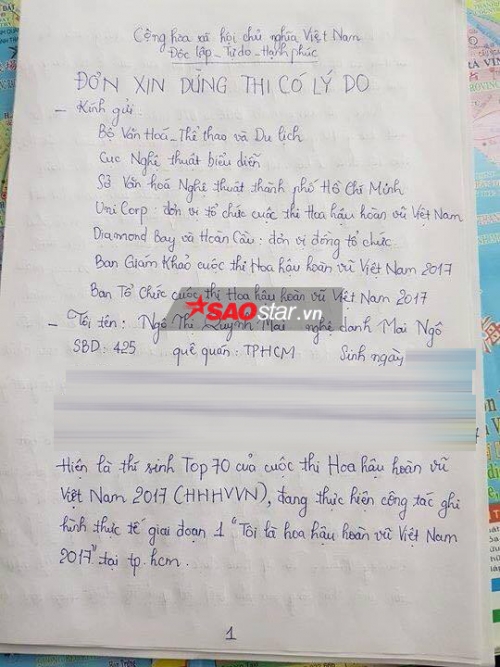 Cộng hòa xã hội chủ nghĩa Việt Nam
Độc lập - Tự do - Hạnh phúc
ĐƠN XIN DỪNG THI CÓ LÝ DO
- Kính gửi:
Bộ Văn Hoá - Thể thao và Du lịch
Cục Nghệ thuật biểu diễn
Sở Văn hoá Nghệ thuật thành phố Hồ Chí Minh
Uni Corp : đơn vị tổ chức cuộc thi Hoa hậu hoàn vũ Việt Nam
Diamond Bay và Hoàn Cầu : đơn vị đồng tổ chức
Ban Giám Khảo cuộc thi Hoa hậu hoàn vũ Việt Nam 2017
Ban Tổ Chức cuộc thi Hoa hậu hoàn vũ Việt Nam 2017
SAOstar.vn
- Tôi tên : Ngô Thị Quỳnh Mai nghệ danh Mai Ngô
SBD : 425 quê quán : TPHCM Sinh ngày
Hiện là thí sinh Top 70 của cuộc thi Hoa hậu hoàn vũ
Việt Nam 2017 (HHHVVN), đang thực hiện công tác ghi
hình thực tế giai đoạn 1 "Tôi là hoa hậu hoàn vũ Việt Nam
2017" tại tp.hcm.
1